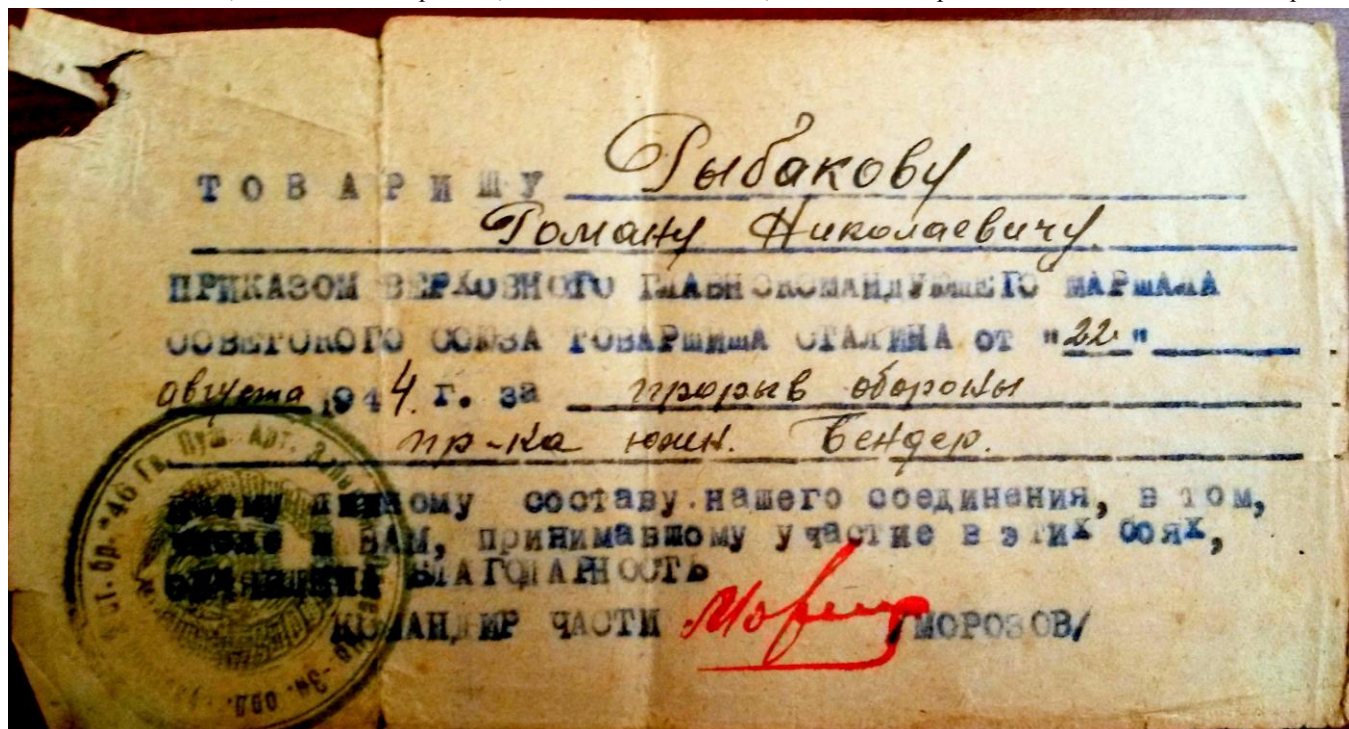 ТОВАРИЩУ Рыбакову
Роману Николаевичу
ПРИКАЗОМ ВЕРХОВНОГО ГЛАВНОКОМАНДУЮЩЕГО МАРШАЛА
СОВЕТСКОГО СОЮЗА ТОВАРИЩА СТАЛИНА от "22"
августа 1944 г. за прорыв обороны
пр-ка южн. Бендер.
всему личному составу нашего соединения, в том,
числе и ВАМ, принимавшему участие в этих боях,
ОБ'ЯВЛЕНА БЛАГОДАРНОСТЬ
КОМАНДИР ЧАСТИ /МОРОЗОВ/
бр. *46 Гв. Пуш. Арт.